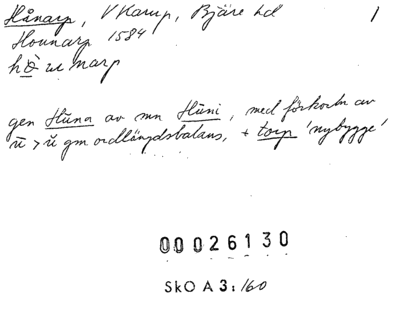 Hånarp, V Karup, Bjäre hd 1
Hounarp 1584
gen Hūna av mn Hūni, med förkortn av
ū > ŭ gm ordlängdsbalans, + torp 'nybygge'
00026130
SkO A 3: 160